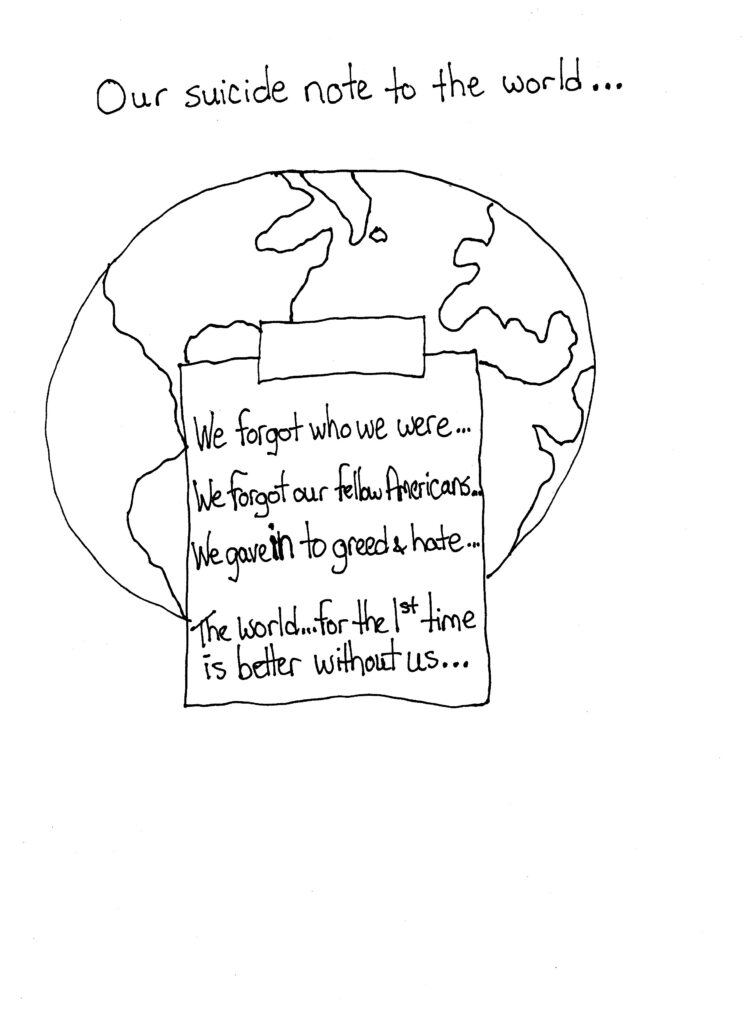 Our suicide note to the world...
We forgot who we were...
We forgot our fellow Americans...
We gave in to greed & hate...
The world...for the 1st time
is better without us...